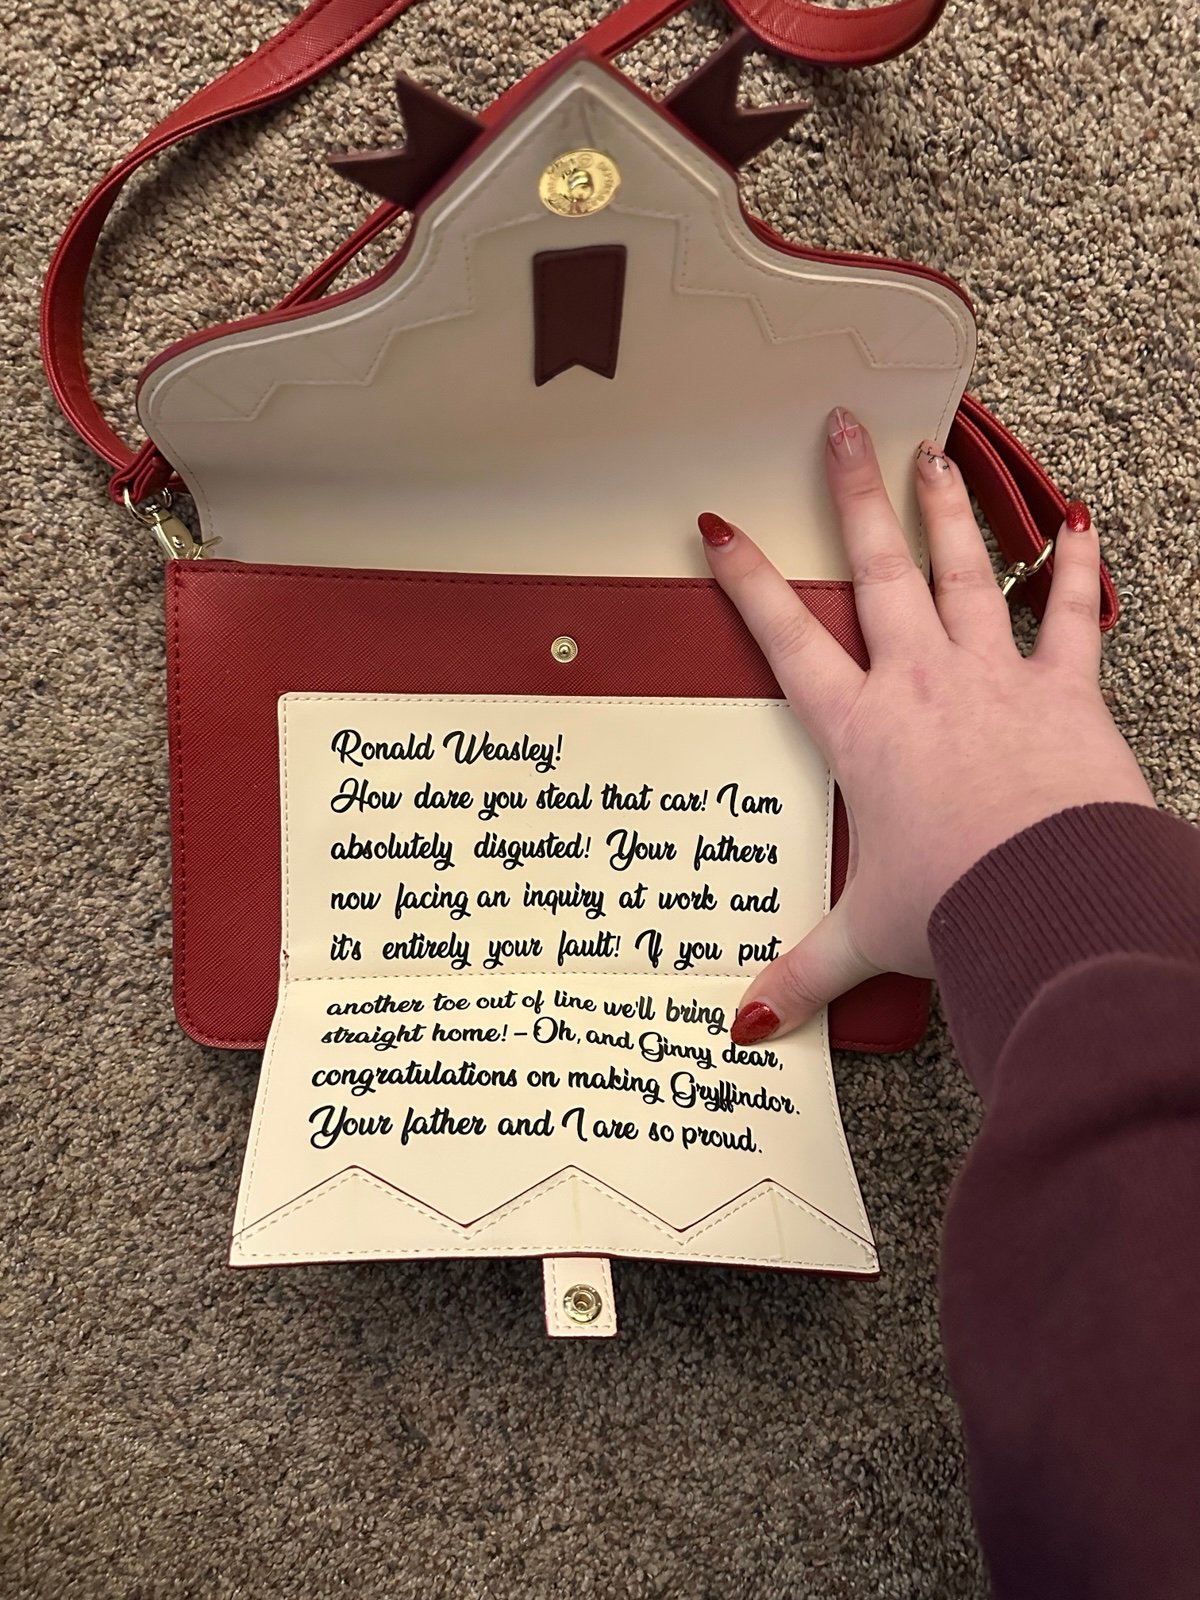 Ronald Weasley!
How dare you steal that car! I am
absolutely disgusted! Your father's
now facing an inquiry at work and
it's entirely your fault! If you put
another toe out of line we'll bring
straight home! – Oh, and Ginny dear,
congratulations on making Gryffindor.
Your father and I are so proud.